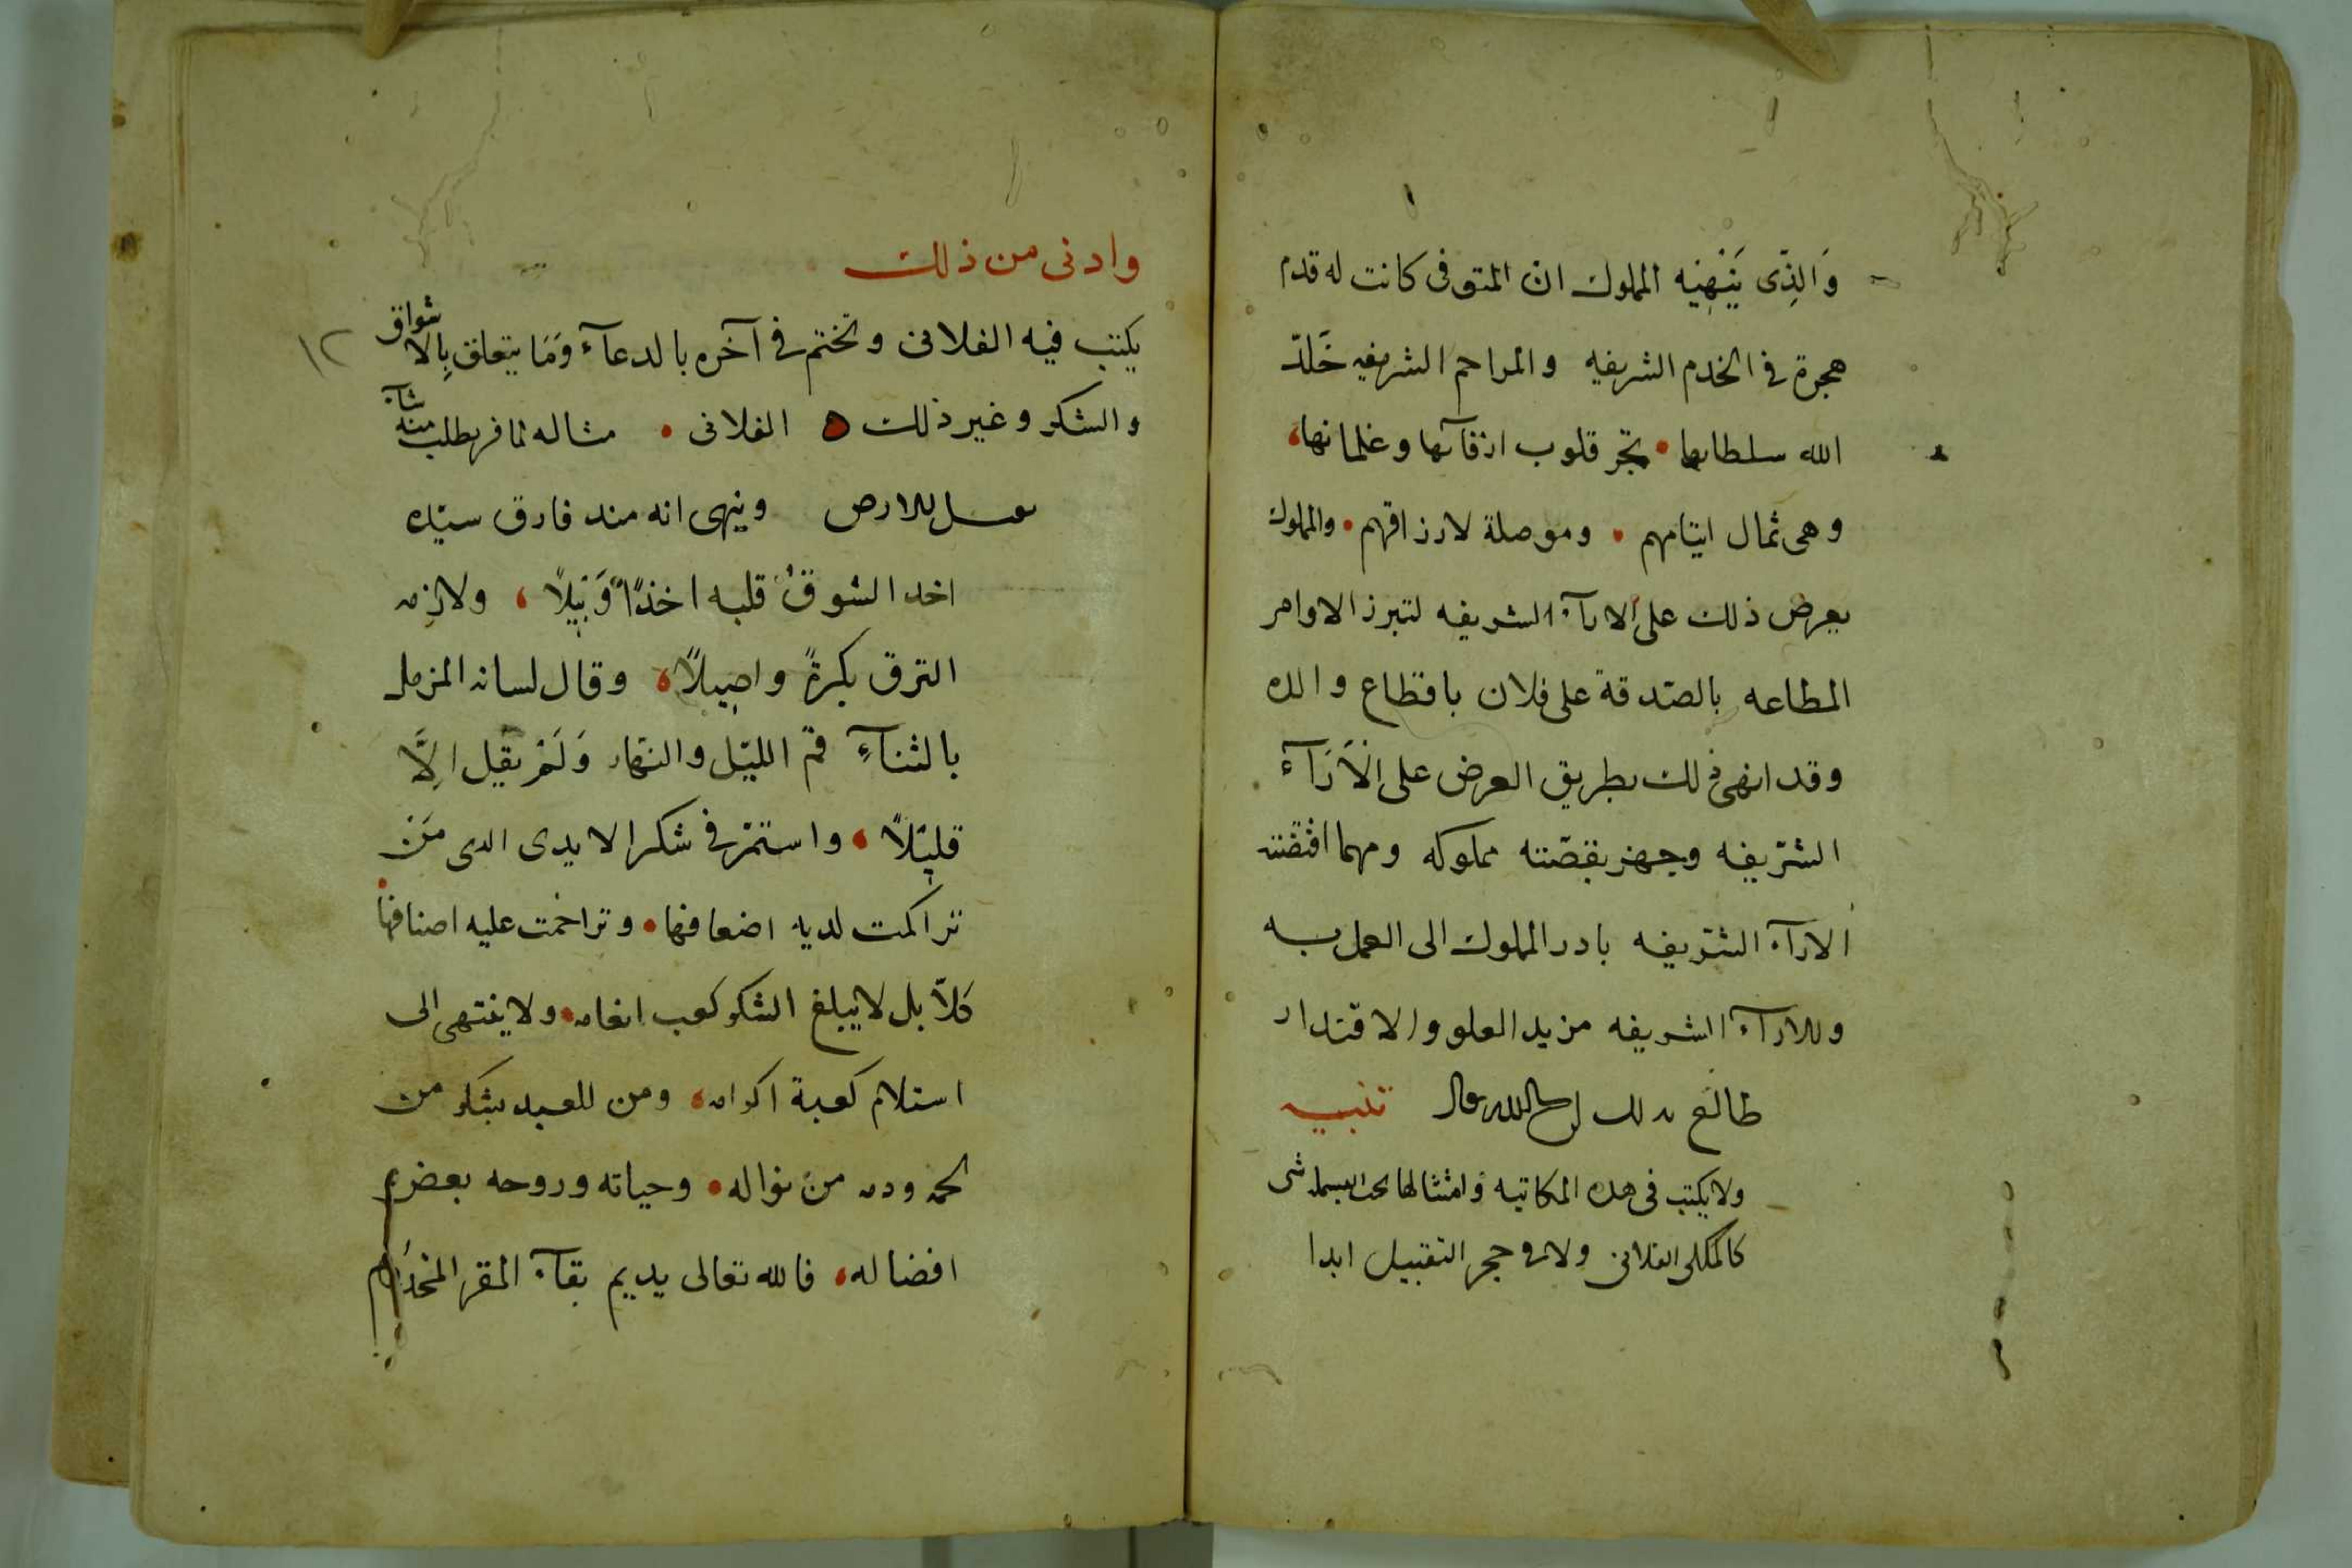 وَالذِّى يَنْهِيه المملوك ان المتوفى كانت له قدم
هجرة فى الخدم الشريفه والمراحم الشريفيه خَلدّ
الله سلطانها • تجبر قلوب ارقآئها وغلمانها،
وهى ثمال ايتامهم • وموصلة لارزاقهم • والمملوك
يعرض ذلك على الارآء الشريفه لتبرز الاوامر
المطاعه بالصّدقة على فلان باقطاع والده
وقد انهى ذلك بطريق العرض على الْآرَآءَ
الشّريفه وجهز بقصّته مملوكه ومهما اقتضته
الارآء الشّريفه بادر المملوك الى العمل به
وللارآء الشريفه مزيد العلو والاقتدار
طالع بذلك ان شا الله تعالى تنبيه
ولا يكتب فى هذه المكاتبه وامثالها تحت البسمله شى
كالملكى الفلانى ولا فى حجر التقبيل ابدا
وادنى من ذلك
١٢
يكتب فيه الفلانى وتختم فى آخره بالدعآء وَمَا يتعلق بِالاشواق
والشكر وغير ذلك الفلانى • مثاله لمسافر يطلب منه
يقبل الارض وينهى انه منذ فارق سيّده
اخذ الشوق قلبه اخذًا وَبِيْلاً ، ولازمه
الترق بكرةً واصِيلاً، وقال لسانه المزمل
بالثنآءِ قم الليّل والنّهار وَلَمْ يقل الِاَّ
قليْلاً ، واستمرّ فى شكر الايدى الذى مَنْ
تراكمت لديه اضعافها • وتزاحمت عليه اصنافها
كَلاّ بل لا يبلغ الشكر كعب انعامه • ولا ينتهى الى
استلام كعبة اكرامه ، ومن للعبد بشكر من
لحمه ودمه من نواله • وحياته وروحه بعض
افضاله ، فالله تعالى يديم بقآء المقر المخدوم